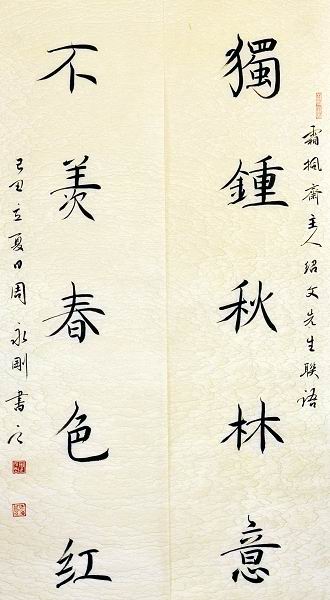 霜枫斋主人绍文先生联语
獨鍾秋林意
不羡春色红
己丑立夏日周永刚書之